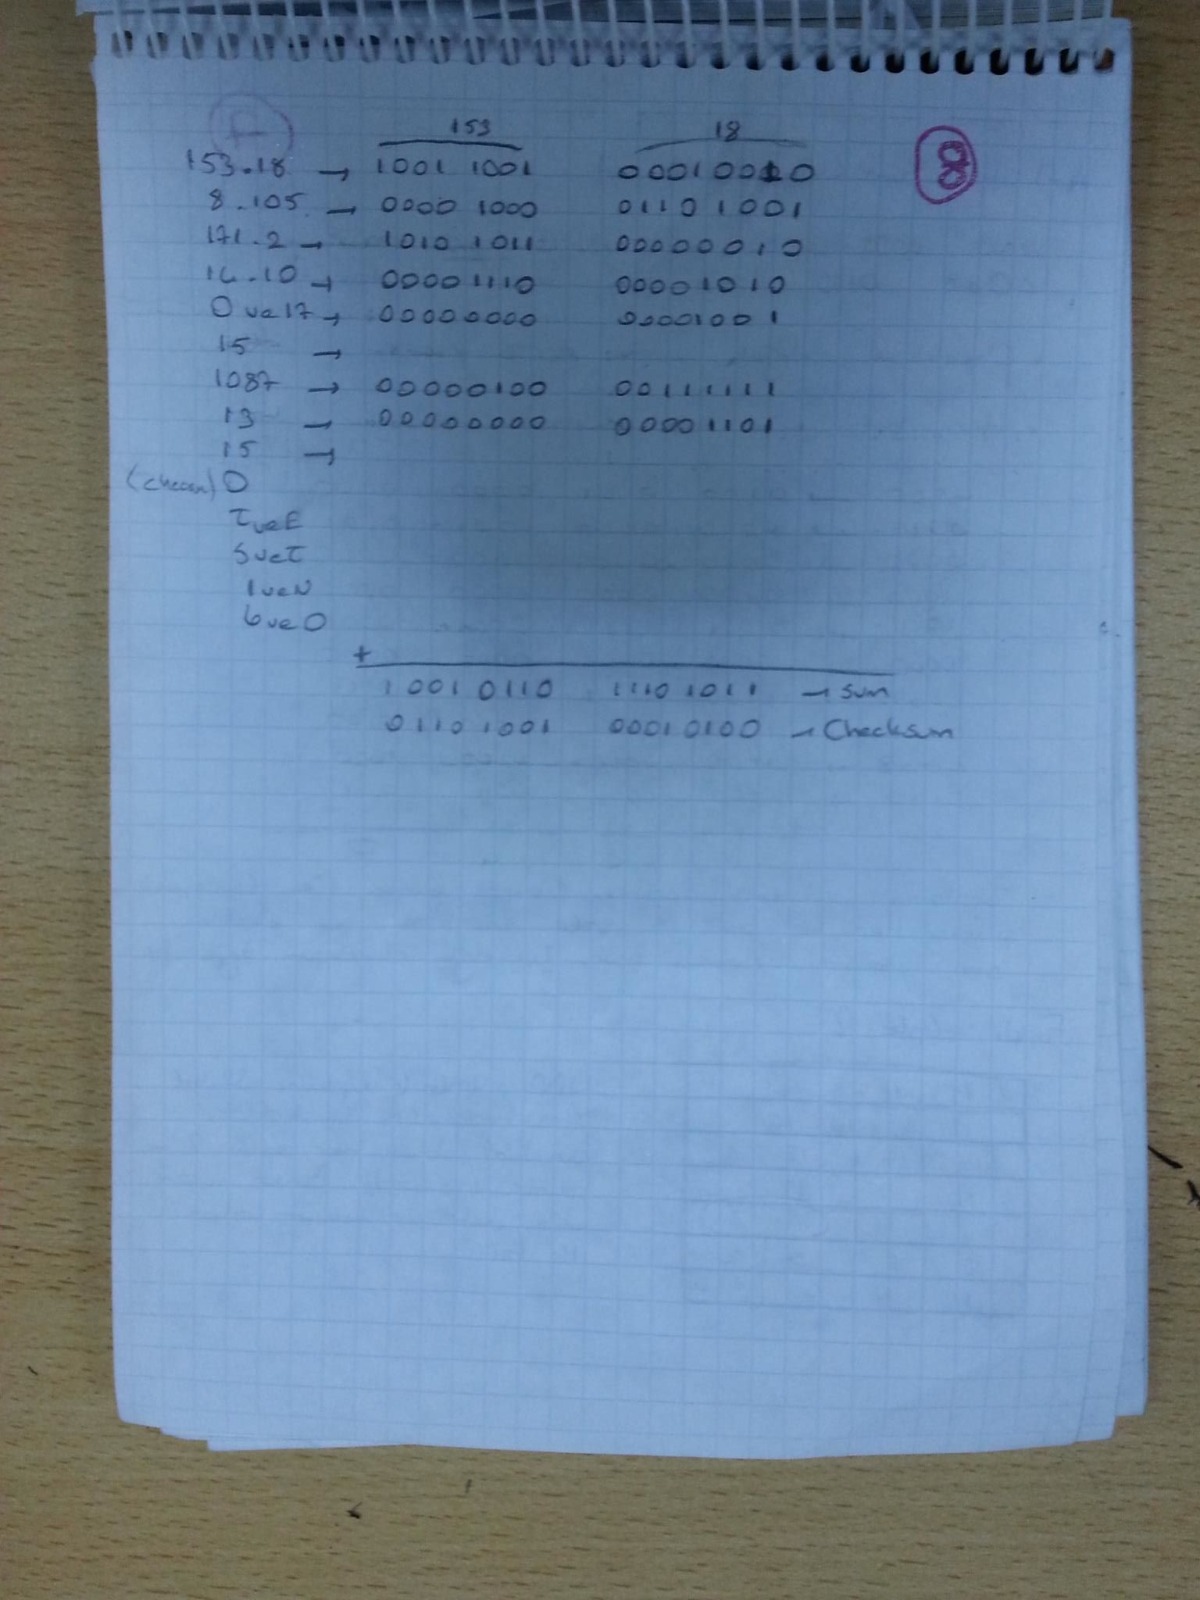 153 18
153.18 → 1001 1001 00010010
8.105 → 0000 1000 01101001
171.2 → 1010 1011 00000010
14.10 → 00001110 00001010
0 ve 17 → 00000000 00001001
15 →
1087 → 00000100 00111111
13 → 00000000 00001101
15 →
0
T ve E
S ve T
I ve N
G ve O
+
10010110 11101011 → Sum
01101001 00010100 → Checksum
8